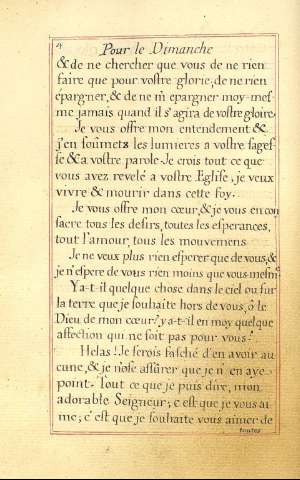 4
Pour le Dimanche
& de ne chercher que vous de ne rien
faire que pour vostre glorie, de ne rien
epargner, & de ne m'epargner moy-mes-
me jamais quand il s'agira de vostre gloire.
Je vous offre mon entendement &
j'en soûmets les lumieres a vostre sages-
se & a vostre parole. Je crois tout ce que
vous avez revelé a vostre Eglise, je veux
vivre & mourir dans cette foy.
Je vous offre mon cœur, & je vous en con
sacre tous les desirs, toutes les esperances,
tout l'amour, tous les mouvemens
Je ne veux plus rien esperer que de vous, &
je n'espere de vous rien moins que vous-mesm
Y a-t-il quelque chose dans le ciel ou sur
la terre que je souhaite hors de vous, ô le
Dieu de mon cœur? y a-t-il en moy quelque
affection qui ne soit pas pour vous?
Helas! Je serois fasché d'en avoir au
cune, & je n'ose assûrer que je n'en aye
point. Tout ce que je puis dire, mon
adorable Seigneur; c'est que je vous ai
me; c'est que je souhaite vous aimer de
toutes